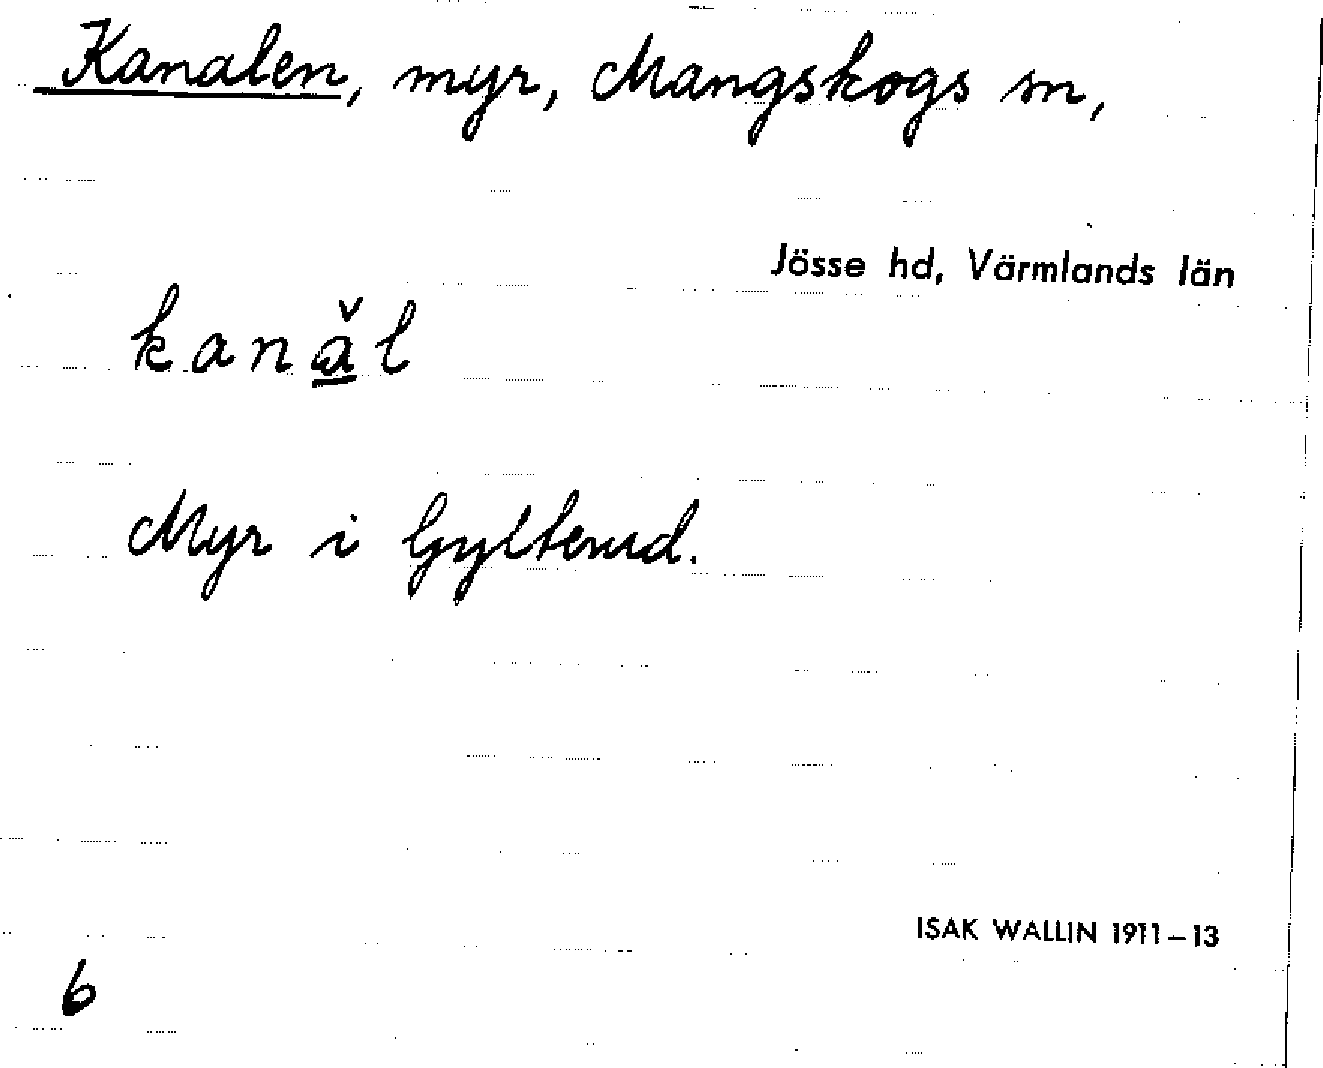 Kanalen, myr, Mangskogs sn,
Jösse hd, Värmlands län
kanǎ̲l
Myr i Gylterud.
ISAK WALLIN 1911–13
6